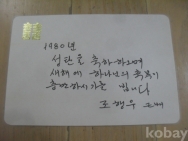 1980년
성탄을 축하하오며
새해에 하나님의 축복이
충만하시기를 빕니다
조행우 드림
kobay